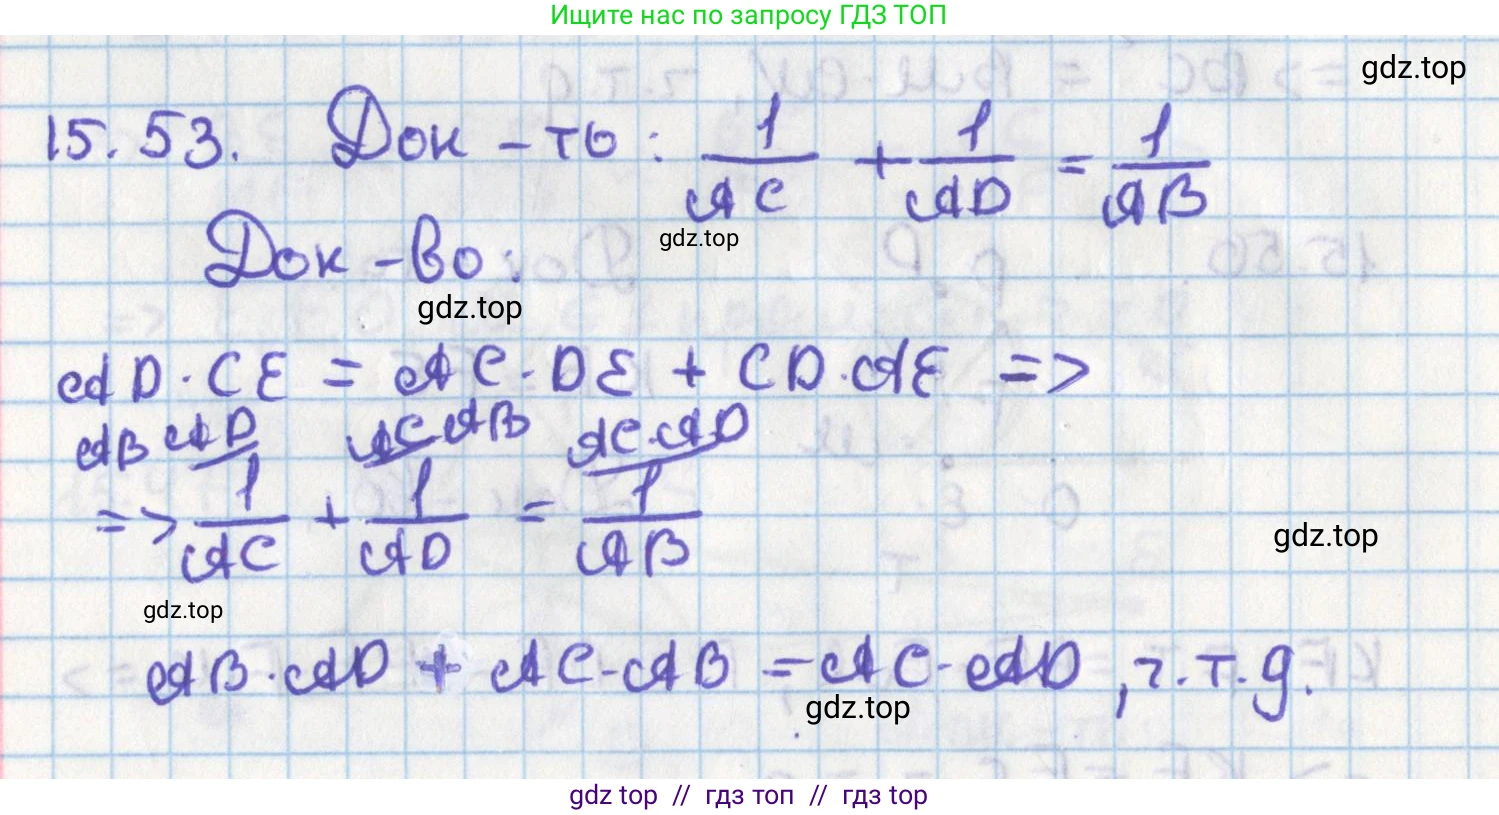 Ищите нас по запросу ГДЗ ТОП
gdz.top
15.53. Док-ть: 1/AC + 1/AD = 1/AB
gdz.top
Док-во:
gdz.top
AD · CE = AC · DE + CD · AE =>
AB AD AC·AB AC·AD
=> 1/AC + 1/AD = 1/AB
gdz.top
gdz.top
AB · AD + AC · AB = AC · AD, ч.т.д.
gdz.top
gdz top // гдз топ // гдз top